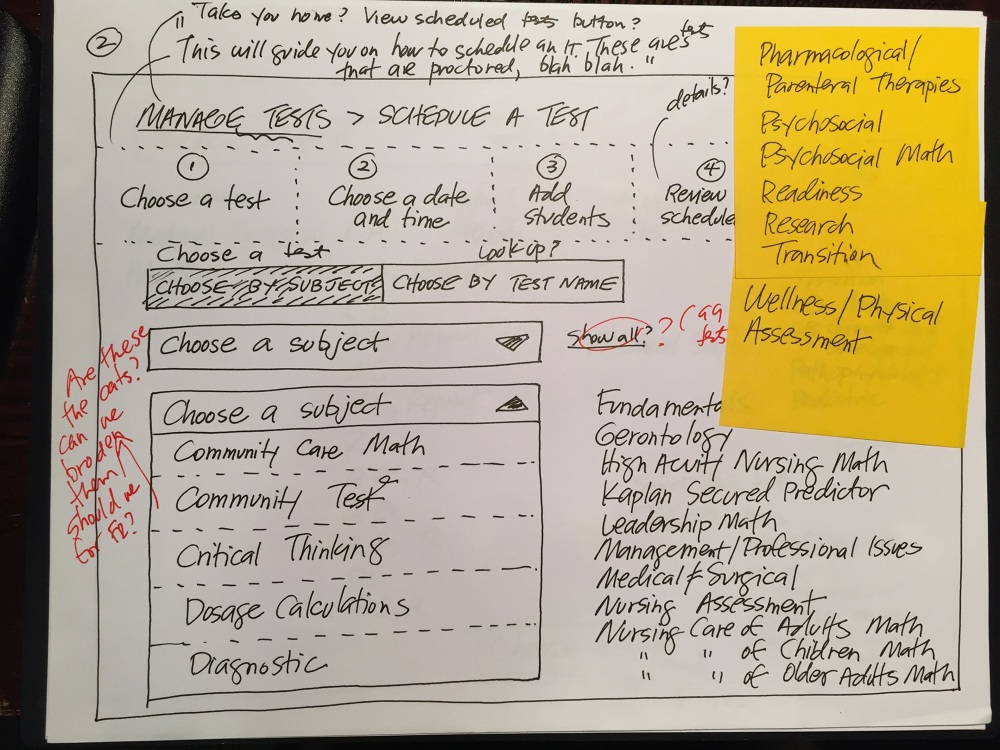 ②
" Take you home? View scheduled tests button?
This will guide you on how to schedule an IT. These are tests
that are proctored, blah blah. "
details?
MANAGE TESTS > SCHEDULE A TEST
① Choose a test
② Choose a date and time
③ Add students
④ Review schedule
Choose a test
Look-up?
CHOOSE BY SUBJECT
CHOOSE BY TEST NAME
Choose a subject
Show all? ? (99 tests
Choose a subject
Community Care Math
Community Test?
Critical Thinking
Dosage Calculations
Diagnostic
Are these
the cats?
can we
broaden
them/
Should we
for FR?
Fundament
Gerontology
High Acuity Nursing Math
Kaplan Secured Predictor
Leadership Math
Management/Professional Issues
Medical & Surgical
Nursing Assessment
Nursing Care of Adults Math
" " of Children Math
" " of Older Adults Math
Pharmacological/
Parenteral Therapies
Psychosocial
Psychosocial Math
Readiness
Research
Transition
Wellness/Physical
Assessment